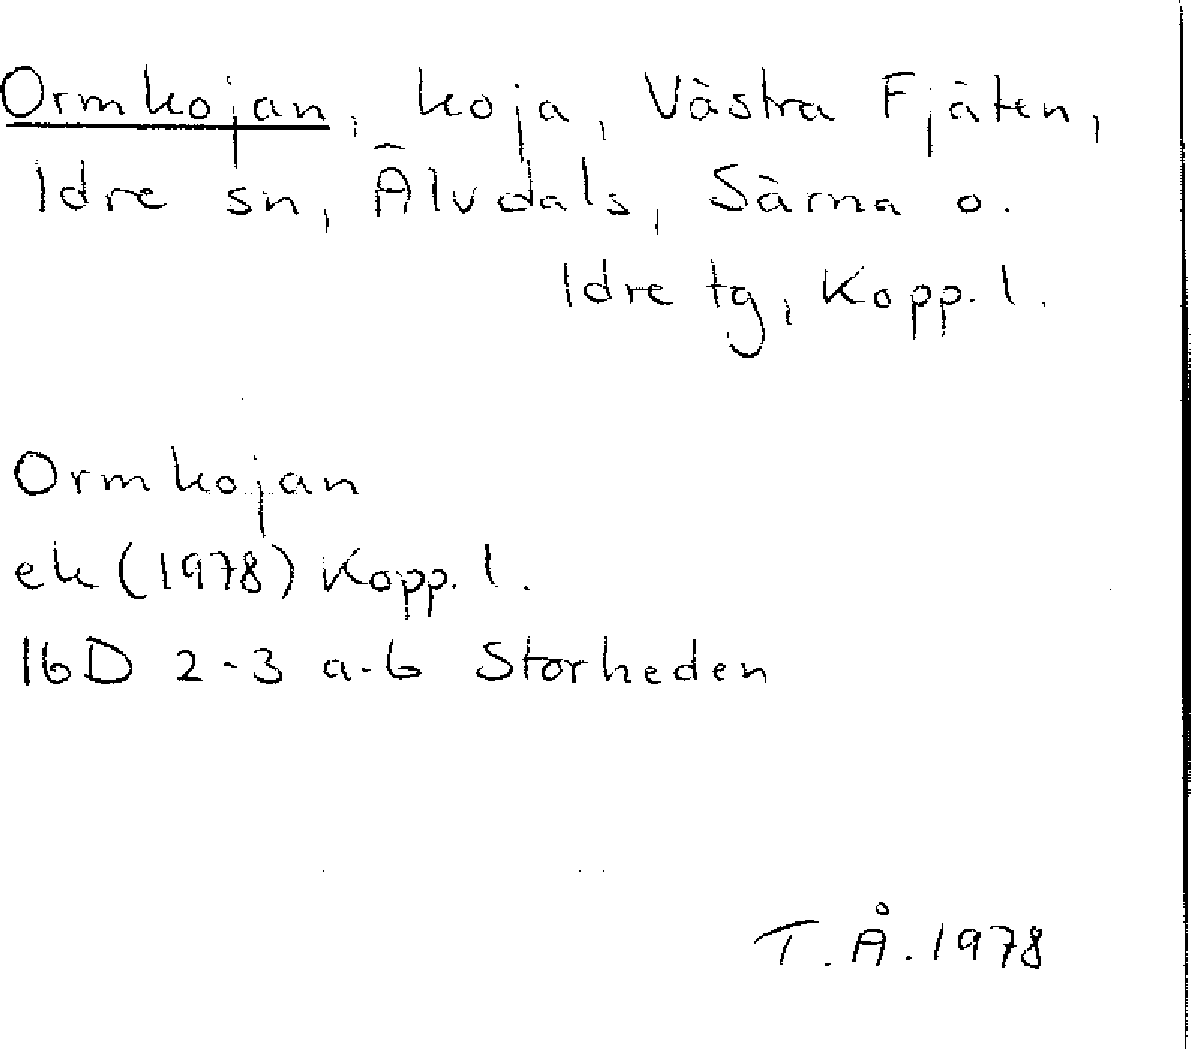 Ormkojan, koja, Västra Fjäten,
Idre sn, Älvdals, Särna o.
Idre tg, Kopp. l.
Ormkojan
ek (1978) Kopp. l.
16D 2-3 a-b Storheden
T. Å. 1978